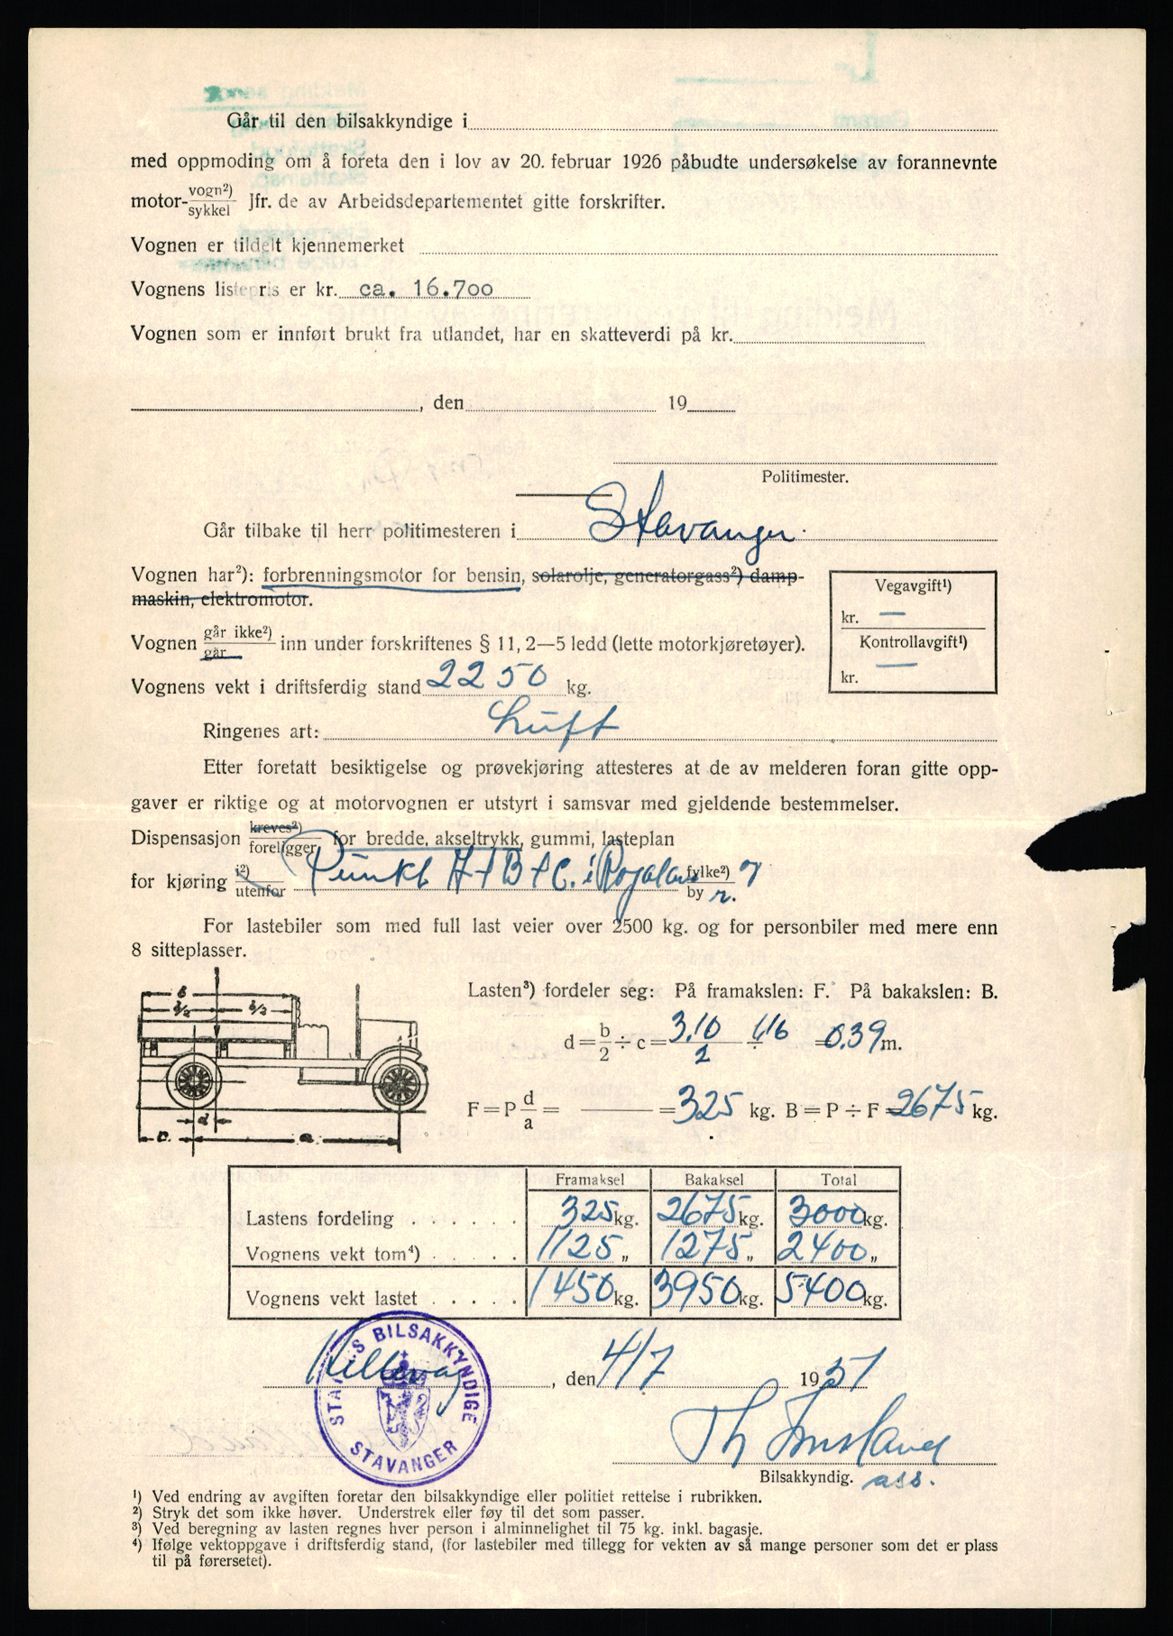 Går til den bilsakkyndige i
med oppmoding om å foreta den i lov av 20. februar 1926 påbudte undersøkelse av forannevnte
motor- vogn²) / sykkel Jfr. de av Arbeidsdepartementet gitte forskrifter.
Vognen er tildelt kjennemerket
Vognens listepris er kr. ca. 16.700
Vognen som er innført brukt fra utlandet, har en skatteverdi på kr.
, den 19
Politimester.
Går tilbake til herr politimesteren i Stavanger.
Vognen har²): forbrenningsmotor for bensin, solarolje, generatorgass²) damp-
maskin, elektromotor.
Vegavgift¹)
kr. —
Kontrollavgift¹)
kr. —
Vognen går ikke²) / går inn under forskriftenes § 11, 2—5 ledd (lette motorkjøretøyer).
Vognens vekt i driftsferdig stand 2250 kg.
Ringenes art: Luft
Etter foretatt besiktigelse og prøvekjøring attesteres at de av melderen foran gitte opp-
gaver er riktige og at motorvognen er utstyrt i samsvar med gjeldende bestemmelser.
Dispensasjon kreves²) / foreligger for bredde, akseltrykk, gummi, lasteplan
for kjøring i²) / utenfor Punkt A + B + C. i Rogaland fylke²) / by
For lastebiler som med full last veier over 2500 kg. og for personbiler med mere enn
8 sitteplasser.
b
b/2 b/2
d
c. a
Lasten³) fordeler seg: På framakslen: F. På bakakslen: B.
d = b/2 ÷ c = 3.10/2 ÷ 1,16 = 0.39 m.
F = P d/a = = 325 kg. B = P ÷ F = 2675 kg.
Framaksel Bakaksel Total
Lastens fordeling . . . . . . 325 kg. 2675 kg. 3000 kg.
Vognens vekt tom⁴) . . . . . 1125 „ 1275 „ 2400 „
Vognens vekt lastet . . . . . 1450 kg. 3950 kg. 5400 kg.
STATENS BILSAKKYNDIGE
STAVANGER
Hillevåg, den 4/7 1951
Bilsakkyndig. ass.
¹) Ved endring av avgiften foretar den bilsakkyndige eller politiet rettelse i rubrikken.
²) Stryk det som ikke høver. Understrek eller føy til det som passer.
³) Ved beregning av lasten regnes hver person i alminnelighet til 75 kg. inkl. bagasje.
⁴) Ifølge vektoppgave i driftsferdig stand, (for lastebiler med tillegg for vekten av så mange personer som det er plass
til på førersetet).